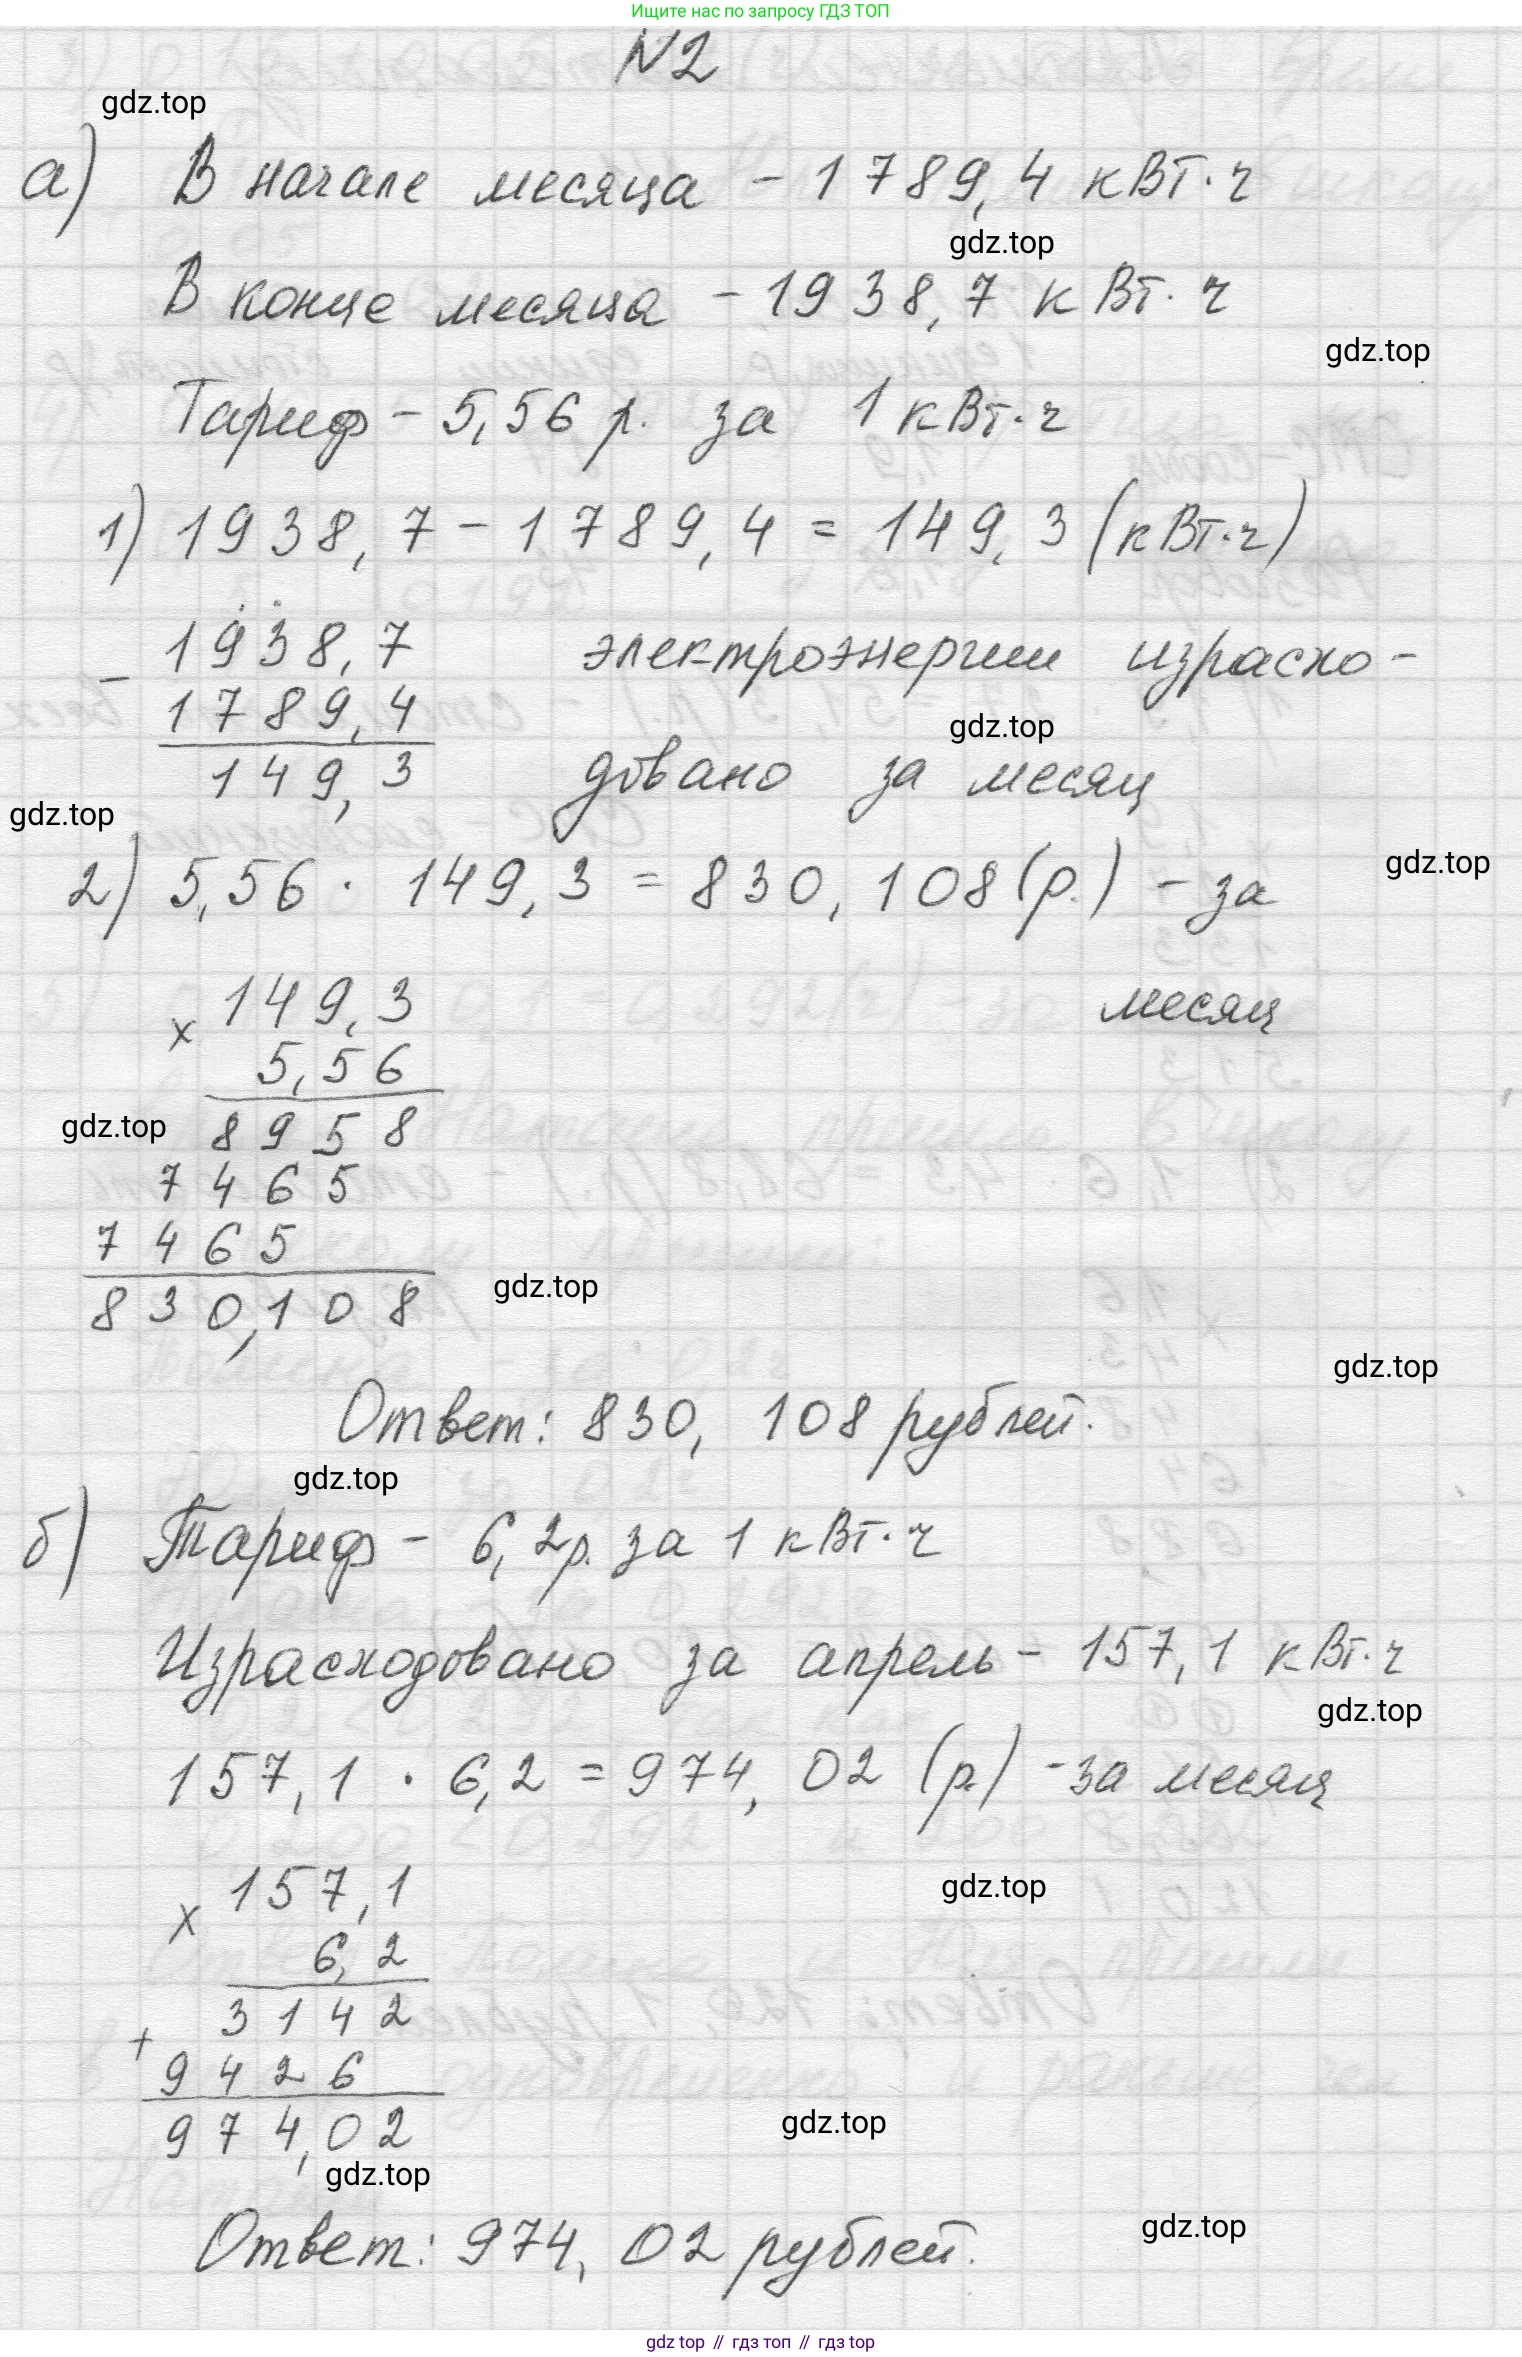 Ищите нас по запросу ГДЗ ТОП
N2
gdz.top
а) В начале месяца - 1789,4 кВт·ч
gdz.top
В конце месяца - 1938,7 кВт·ч
gdz.top
Тариф - 5,56 р. за 1 кВт·ч
1) 1938,7 - 1789,4 = 149,3 (кВт·ч)
- 1938,7 электроэнергии израсхо-
1789,4
gdz.top
149,3 довано за месяц
gdz.top
gdz.top
2) 5,56 · 149,3 = 830,108 (р.) - за
месяц
x 149,3
5,56
gdz.top
8958
7465
7465
gdz.top
830,108
gdz.top
Ответ: 830,108 рублей.
gdz.top
б) Тариф - 6,2 р. за 1 кВт·ч
Израсходовано за апрель - 157,1 кВт·ч
gdz.top
157,1 · 6,2 = 974,02 (р.) - за месяц
x 157,1
gdz.top
6,2
3142
+ 9426
974,02
gdz.top
gdz.top
Ответ: 974,02 рублей.
gdz.top
gdz top // гдз топ // гдз top